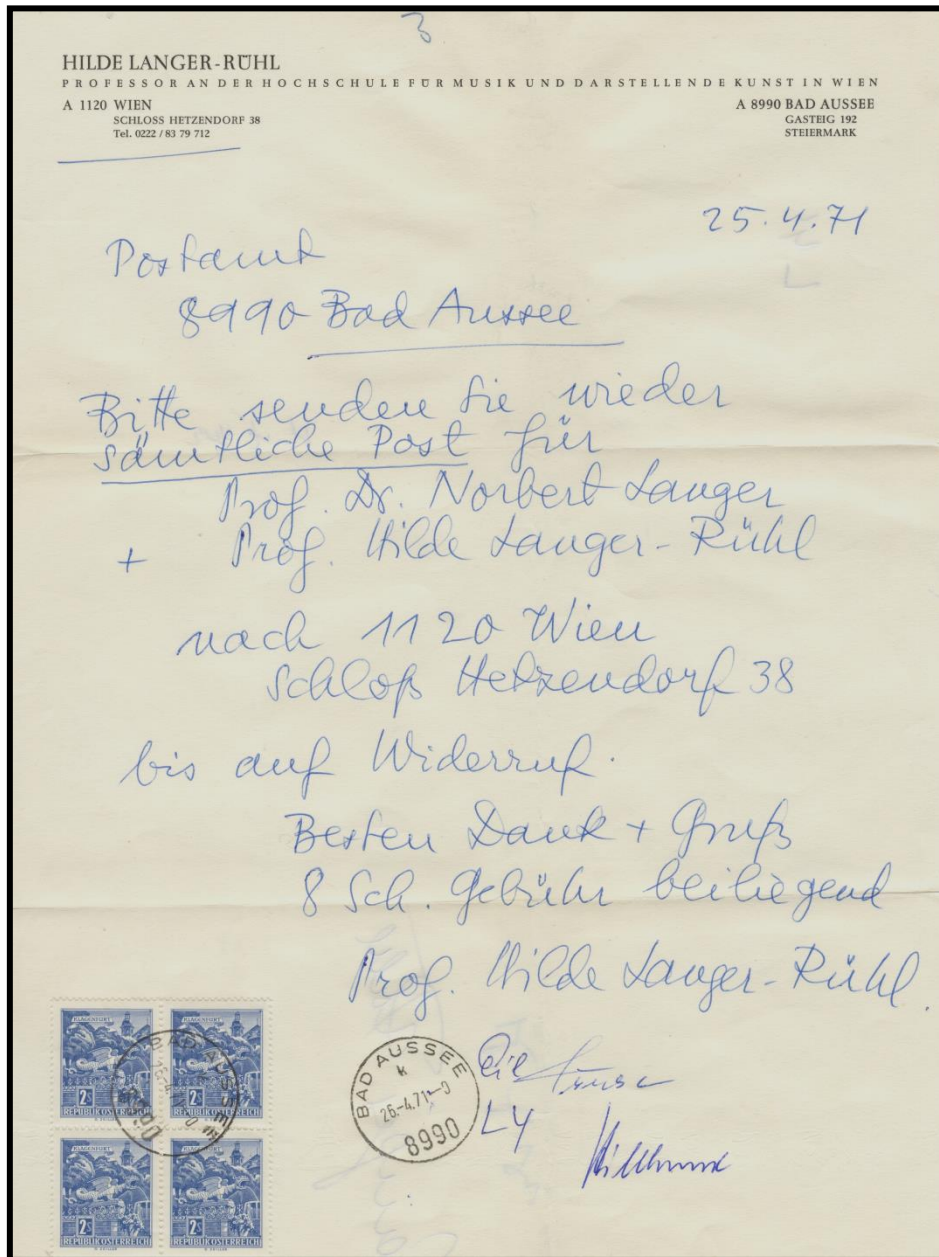 3
HILDE LANGER-RÜHL
PROFESSOR AN DER HOCHSCHULE FÜR MUSIK UND DARSTELLENDE KUNST IN WIEN
A 1120 WIEN
SCHLOSS HETZENDORF 38
Tel. 0222 / 83 79 712
A 8990 BAD AUSSEE
GASTEIG 192
STEIERMARK
25.4.71
Postamt
8990 Bad Aussee
Bitte senden Sie wieder
sämtliche Post für
Prof. Dr. Norbert Langer
+ Prof. Hilde Langer-Rühl
nach 1120 Wien
Schloß Hetzendorf 38
bis auf Widerruf.
Besten Dank + Gruß
8 Sch. Gebühr beiliegend
Prof. Hilde Langer-Rühl.
KLAGENFURT
2S
REPUBLIK ÖSTERREICH
KLAGENFURT
2S
REPUBLIK ÖSTERREICH
KLAGENFURT
2S
REPUBLIK ÖSTERREICH
KLAGENFURT
2S
REPUBLIK ÖSTERREICH
BAD AUSSEE
26.-4.71
8990
BAD AUSSEE
k
26.-4.71-9
8990